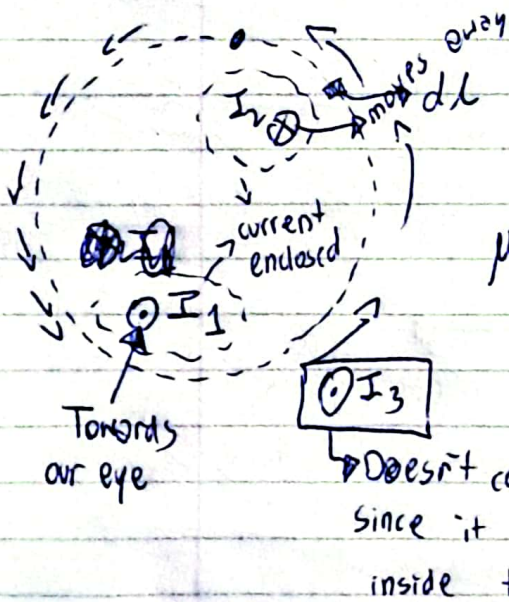 I₂ ⊗
moves away
dl
current
enclosed
⊙ I₁
μ
Towards
our eye
⊙ I₃
Doesn't
since it
inside